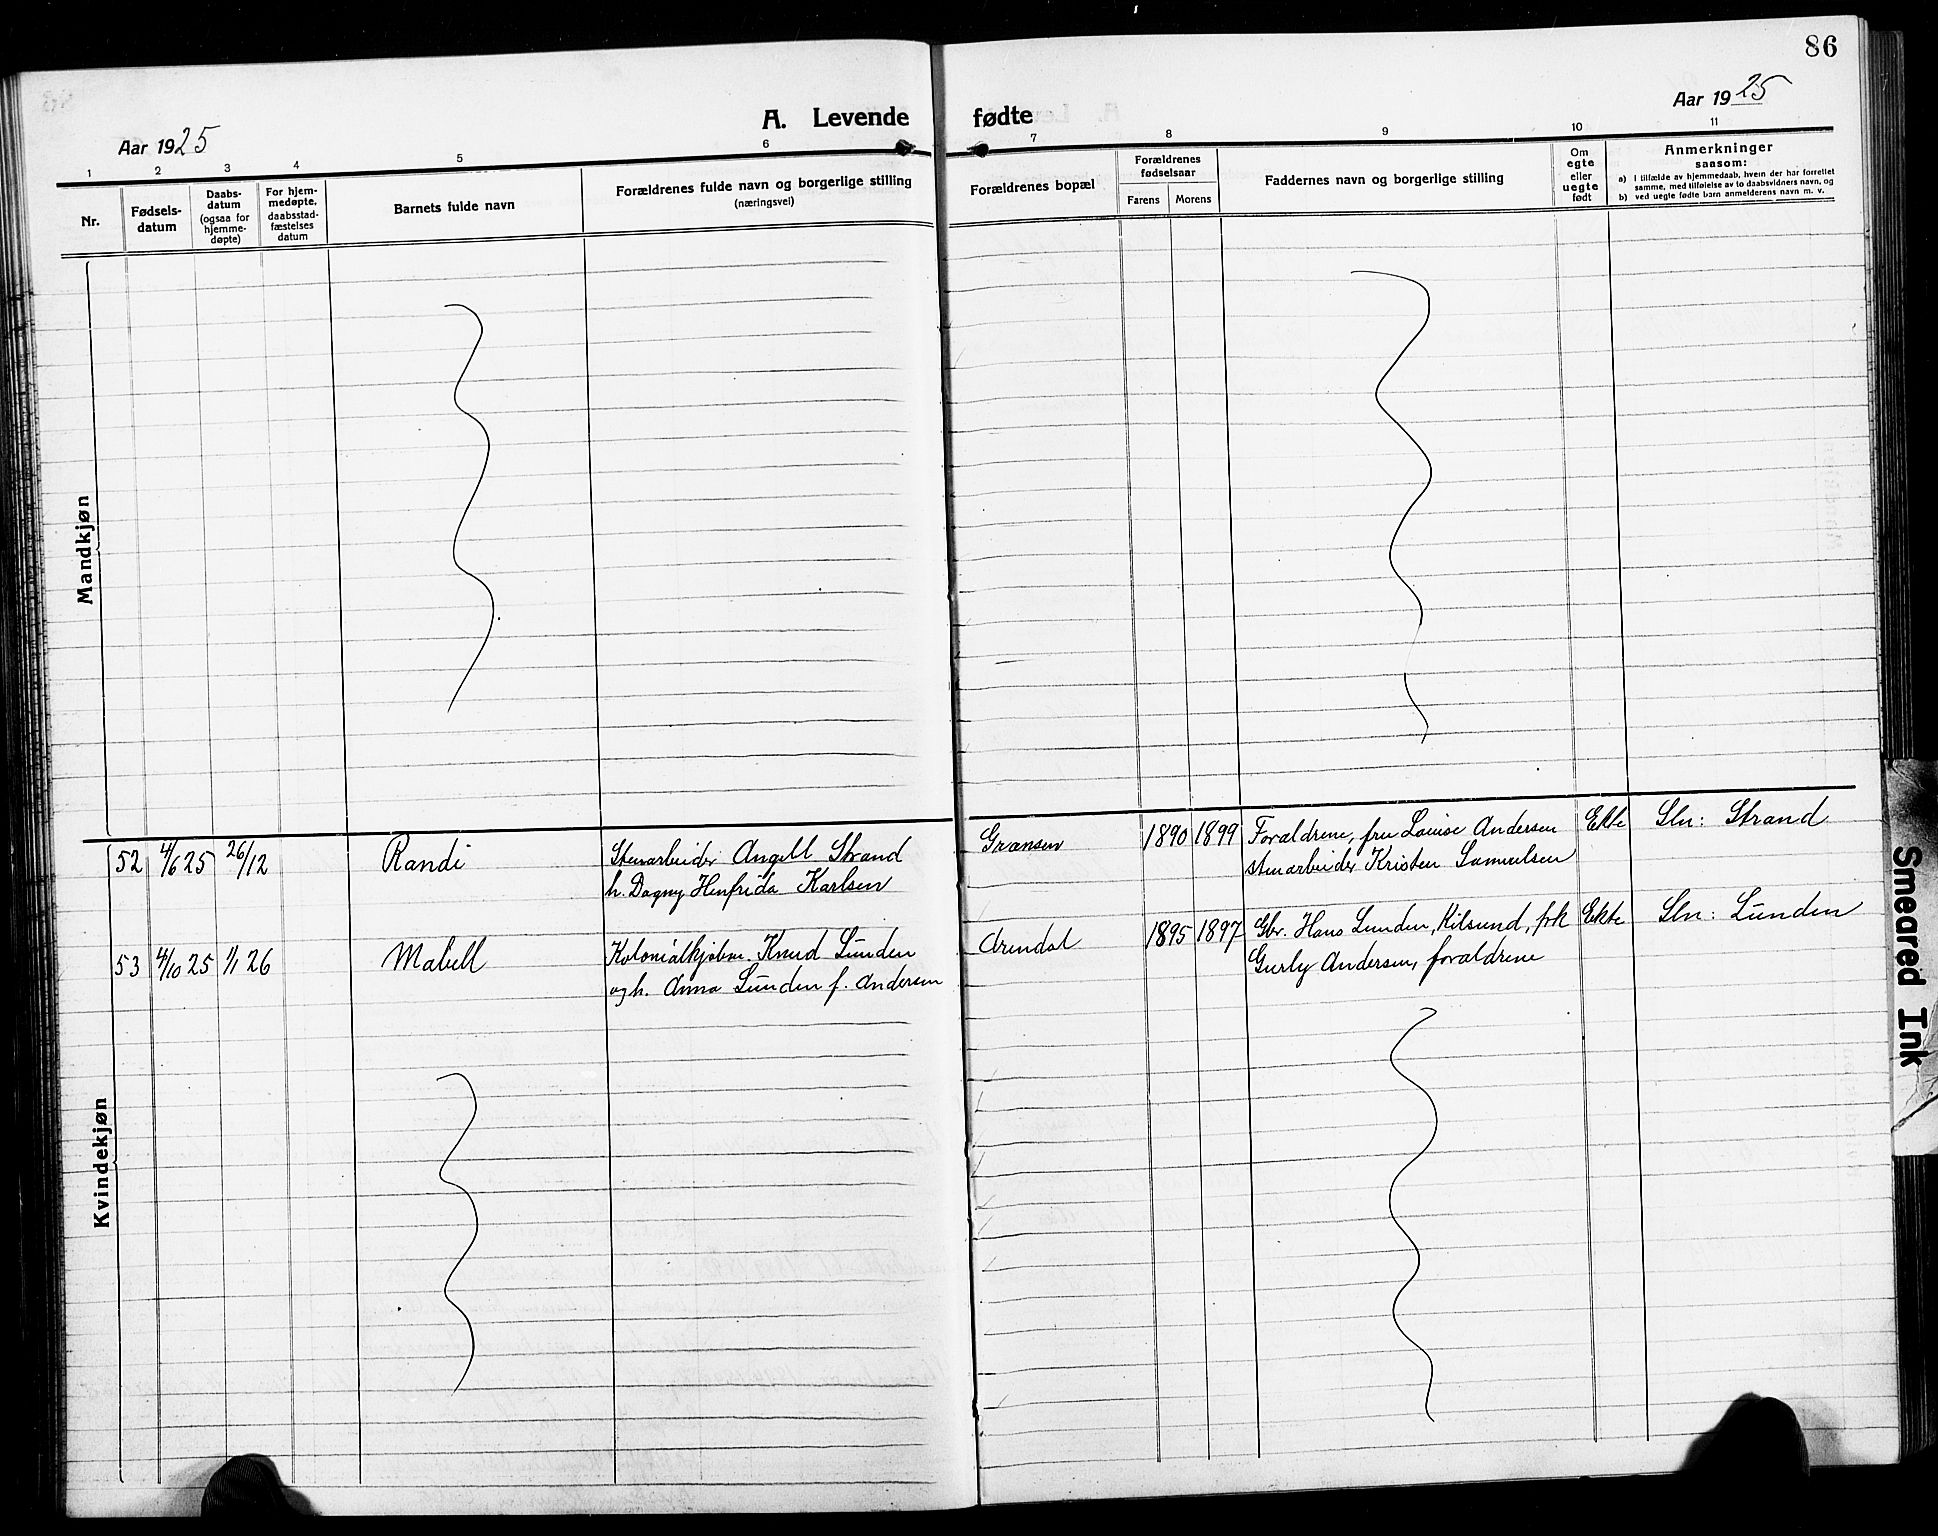 86
A. Levende fødte
Aar 1925
Aar 1925
1 2 3 4 5 6 7 8 9 10 11
Nr.
Fødsels-
datum
Daabs-
datum
(ogsaa for
hjemme-
døpte)
For hjem-
medøpte,
daabsstad-
fæstelses
datum
Barnets fulde navn
Forældrenes fulde navn og borgerlige stilling
(næringsvei)
Forældrenes bopæl
Forældrenes
fødselsaar
Farens
Morens
Faddernes navn og borgerlige stilling
Om
egte
eller
uegte
født
Anmerkninger
saasom:
a) I tilfælde av hjemmedaab, hvem der har forrettet
samme, med tilføielse av to daabsvidners navn, og
b) ved uegte fødte barn anmelderens navn m. v.
Mandkjøn
Kvindekjøn
52 4/6 25 26/12 Randi
Stenarbeider Angell Strand
h. Dagny Henfrida Karlsen
Grænsen 1890 1899
Forældrene, fru Louise Andersen
stenarbeider Kristen Samuelsen
Ekte Sln: Strand
53 4/10 25 1/1 26 Mabell
Kolonialkjøbm. Knud Lunden
og h. Anna Lunden f. Andersen
Arendal 1895 1897
Gbr. Hans Lunden, Kilsund, frk
Gurly Andersen, forældrene
Ekte Sln: Lunden
Smeared Ink